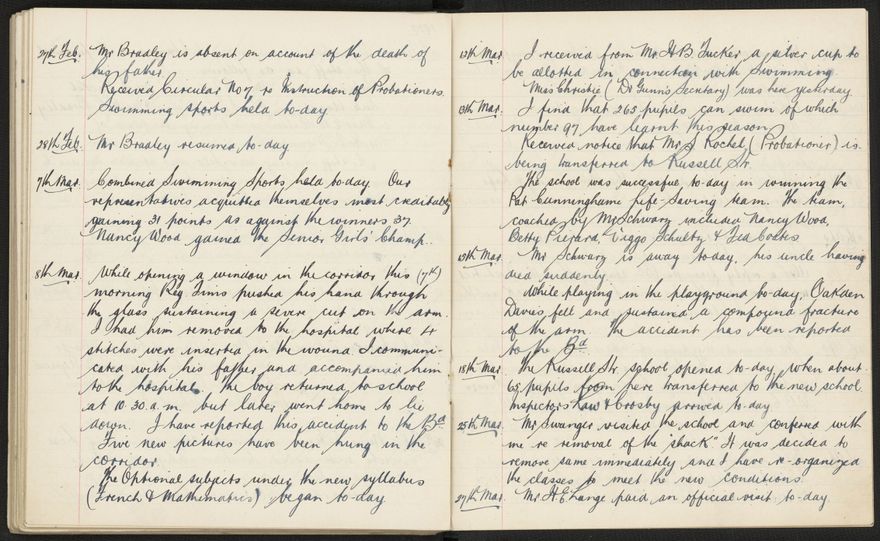 27th Feb. Mr Bradley is absent on account of the death of
his father.
Received Circular No 7 re Instruction of Probationers.
Swimming sports held to-day
28th Feb. Mr Bradley resumed to-day
7th Mar. Combined Swimming Sports held to-day. Our
representatives acquitted themselves most creditably
gaining 31 points as against the winners 37.
Nancy Wood gained the Senior Girls' Champ.
8th Mar. While opening a window in the corridor this (7th)
morning Reg Tims pushed his hand through
the glass sustaining a severe cut on the arm.
I had him removed to the hospital where 4
stitches were inserted in the wound. I communi-
cated with his father and accompanied him
to the hospital. The boy returned to school
at 10.30 a.m. but later went home to lie
down. I have reported this accident to the Bd
Five new pictures have been hung in the
corridor
The Optional subjects under the new syllabus
(French & Mathematics) began to-day
12th Mar. I received from Mr H B Tucker a silver cup to
be allotted in connection with Swimming.
Miss Christie (Dr Gunn's Secretary) was here yesterday
13th Mar. I find that 265 pupils can swim of which
number 97 have learnt this season
Received notice that Mr J Rockel (Probationer) is
being transferred to Russell St.
The school was successful to-day in winning the
Pat Cunninghame Life-Saving team. The team,
coached by Mr Schwarz included Nancy Wood,
Betty Pickard, Viggo Schultz & Coates
Mar. Mr Schwarz is away to-day, his uncle having
died suddenly
While playing in the playground to-day, Oakden
Davis fell and sustained a compound fracture
of the arm. The accident has been reported
to the Bd.
18th Mar. The Russell St. school opened to-day, when about
65 pupils from here transferred to the new school.
Inspectors Law & Crosby arrived to-day
25th Mar. Mr Swanger visited the school and conferred with
me re removal of the "shack". It was decided to
remove same immediately and I have re-organized
the classes to meet the new conditions.
27th Mar. Mr H. E. Lange paid an official visit to-day.